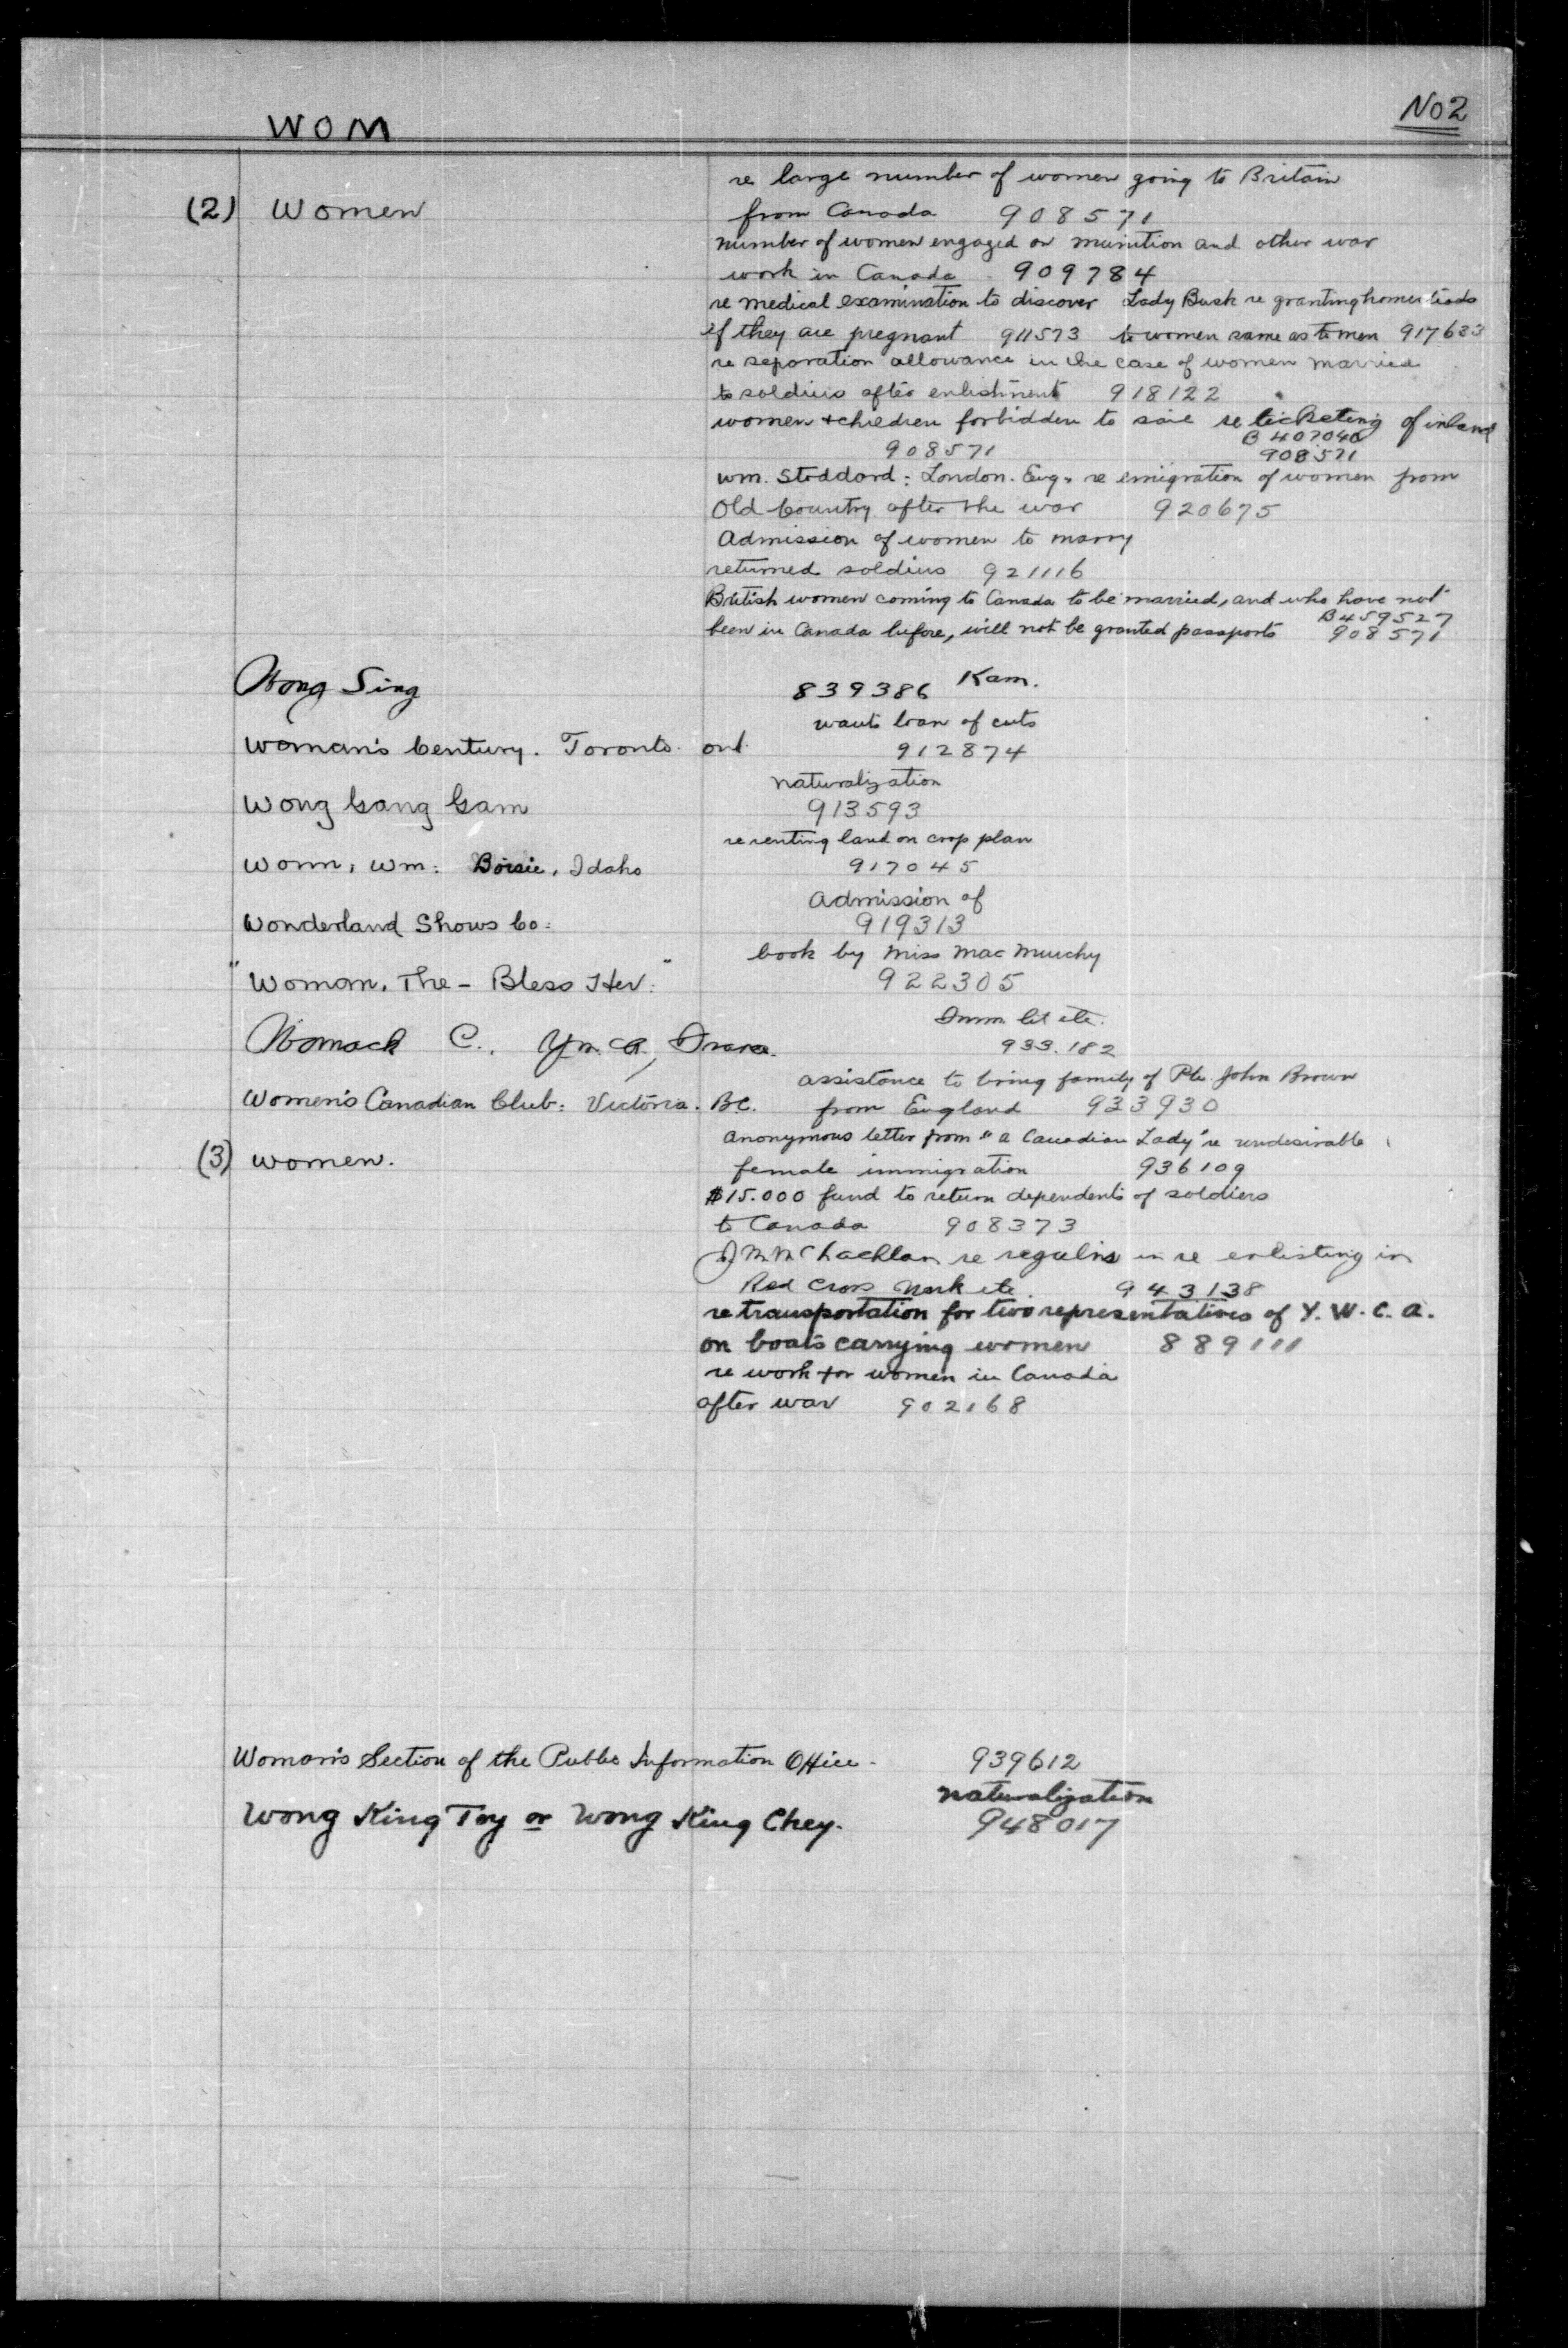 WOM
No 2
re large number of women going to Britain
(2) Women
from Canada 908571
number of women engaged on munition and other war
work in Canada 909784
re medical examination to discover Lady Busk re granting homesteads
if they are pregnant 911573 to women same as to men 917633
re separation allowance in the case of women married
to soldiers after enlistment 918122
women & children forbidden to sail re ticketing of inland
B 407040
908571 908571
Wm. Stoddard: London. Eng. re emigration of women from
Old Country after the war 920675
Admission of women to marry
returned soldiers 921116
British women coming to Canada to be married, and who have not
B459527
been in Canada before, will not be granted passports 908571
Wong Sing 839386 Kam.
wants loan of cuts
Woman's Century. Toronto. Ont. 912874
naturalization
Wong Gang Gam 913593
re renting land on crop plan
Wonn, Wm: Boisie, Idaho 917045
Admission of
Wonderland Shows Co: 919313
book by Miss MacMurchy
"Woman, The - Bless Her." 922305
Imm. lit etc.
Womack C., Y.M.C.A., 933.182
assistance to bring family of Pte. John Brown
Women's Canadian Club: Victoria. B.C. from England 933930
Anonymous letter from "a Canadian Lady" re undesirable
(3) Women. female immigration 936109
$15.000 fund to return dependents of soldiers
to Canada 908373
J McLachlan re regulns in re enlisting in
Red Cross Work etc. 943138
re transportation for two representatives of Y.W.C.A.
on boats carrying women 889111
re work for women in Canada
after war 902168
Woman's Section of the Public Information Office. 939612
naturalization
Wong King Toy or Wong King Chey. 948017